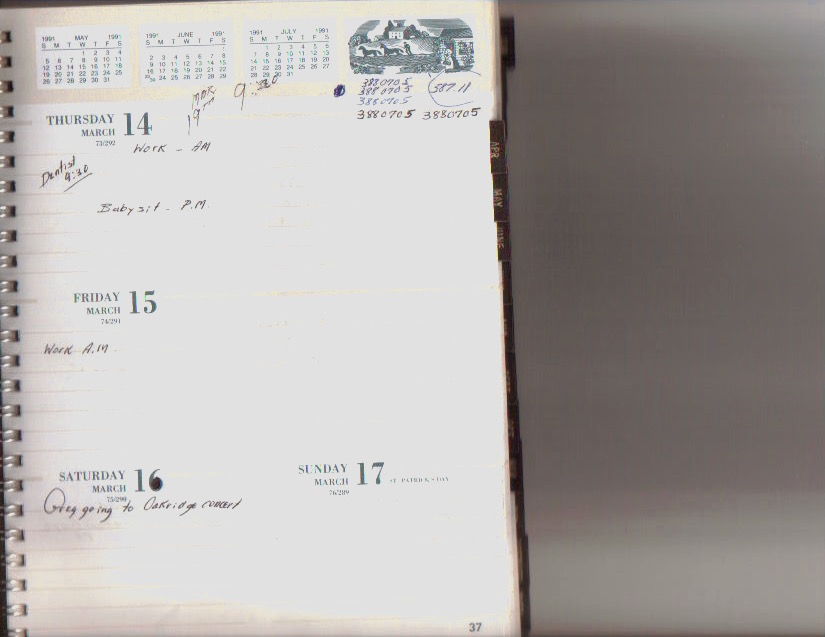 1991 MAY 1991
S M T W T F S
1 2 3 4
5 6 7 8 9 10 11
12 13 14 15 16 17 18
19 20 21 22 23 24 25
26 27 28 29 30 31
1991 JUNE 1991
S M T W T F S
1
2 3 4 5 6 7 8
9 10 11 12 13 14 15
16 17 18 19 20 21 22
23/30 24 25 26 27 28 29
1991 JULY 1991
S M T W T F S
1 2 3 4 5 6
7 8 9 10 11 12 13
14 15 16 17 18 19 20
21 22 23 24 25 26 27
28 29 30 31
3880705
3880705
3880705
3880705 3880705
587.11
19
THURSDAY 14
MARCH
73/292
Work - AM
Dentist
9:30
Babysit - P.M.
FRIDAY 15
MARCH
74/291
Work A.M
SATURDAY 16
MARCH
75/290
Greg going to Oakridge concert
SUNDAY 17
MARCH ST. PATRICK'S DAY
76/289
APR
MAY
JUNE
37